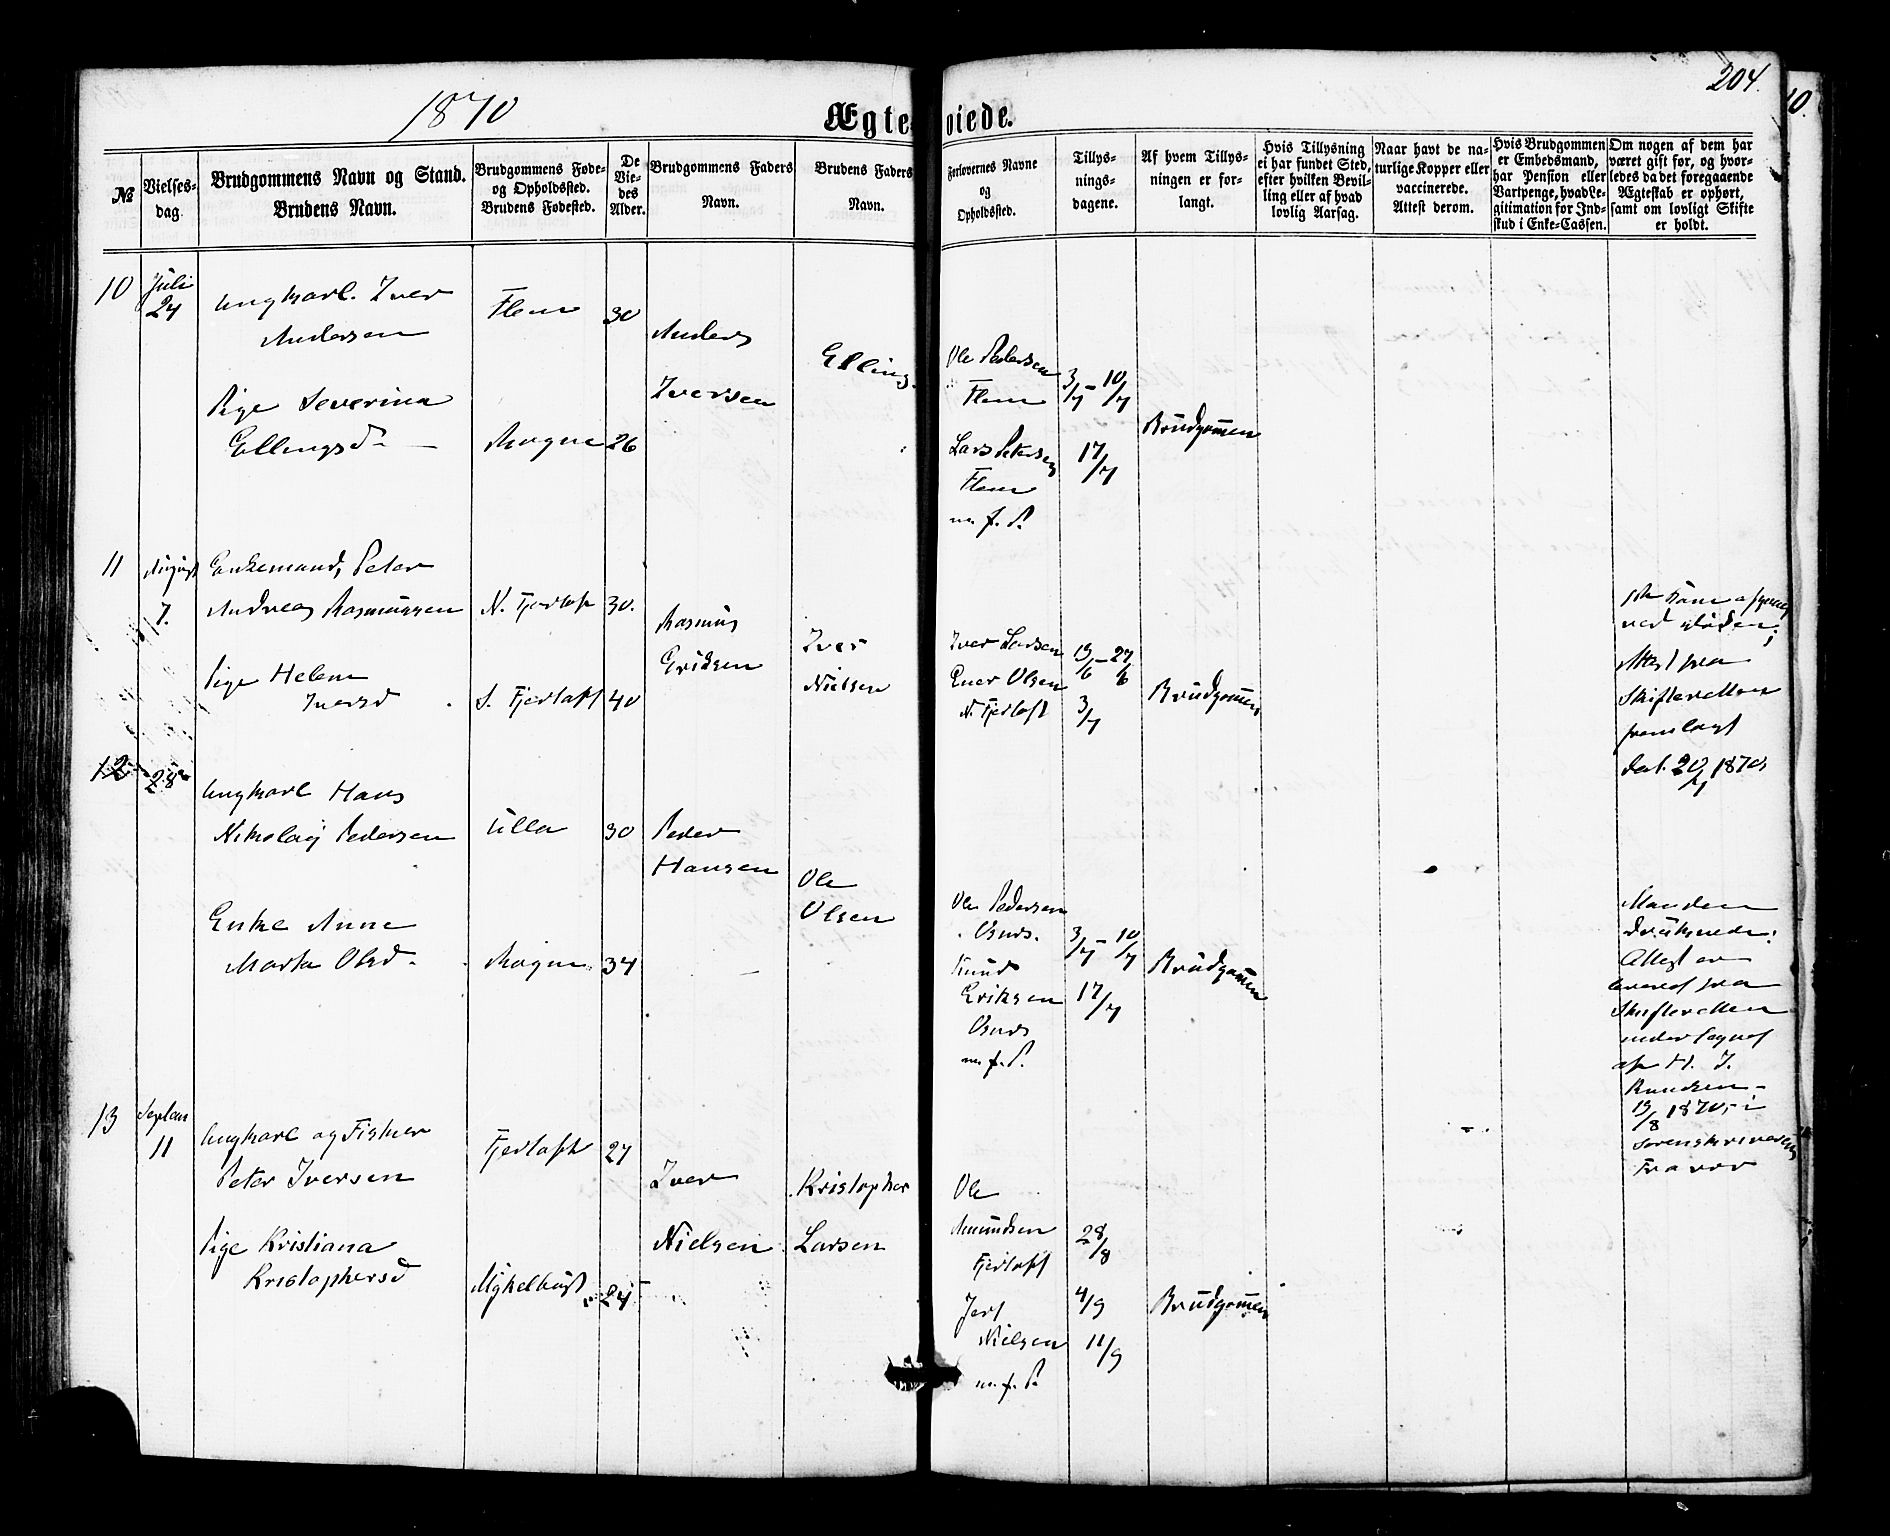 1870
204.
Ægteviede.
№
Vielses-
dag.
Brudgommens Navn og Stand.
Brudens Navn.
Brudgommens Føde-
og Opholdssted.
Brudens Fødested.
De
Vie-
des
Alder.
Brudgommens Faders
Navn.
Brudens Faders
Navn.
Forlovernes Navne
og
Opholdssted.
Tillys-
nings-
dagene.
Af hvem Tillys-
ningen er for-
langt.
Hvis Tillysning
ei har fundet Sted,
efter hvilken Bevil-
ling eller af hvad
lovlig Aarsag.
Naar havt de na-
turlige Kopper eller
vaccinerede.
Attest derom.
Hvis Brudgommen
er Embedsmand,
har Pension eller
Vartpenge, hvad Le-
gitimation for Ind-
skud i Enke-Cassen.
Om nogen af dem har
været gift før, og hvor-
ledes da det foregaaende
Ægteskab er ophørt,
samt om lovligt Skifte
er holdt.
10
Juli
24
Ungkarl. Iver
Andersen
Flem
30
Anders
Iversen
Pige Severina
Ellingsd
Rogne
26
Elling
Ole Pedersen
Flem
Lars Petersen
Flem
m. f. P.
3/7 - 10/7
17/7
Brudgomen
11
August
7.
Enkemand, Peter
Andreas Rasmussen
N. Fjertoft
30.
Rasmus
Eriksen
Pige Helene
Iversd
S. Fjertoft
40
Iver
Nielsen
Iver Larsen
Ener Olsen
N. Fjertoft
19/6 - 27/6
3/7
Brudgomen
ved døden;
Attest fra
Skifteretten
fremlagt
dat. 20/7 1870
12
28
Ungkarl Hans
Nikolaij Pedersen
Ulla
30
Peder
Hansen
Enke Anne
Marta Olsd
Rogne
34
Ole
Olsen
Ole Pedersen
Osnes.
Knud
Eriksen
Osnes
m. f. P.
3/7 - 10/7
17/7
Brudgomen
Manden
druknede:
Attest er
leveret fra
Skifteretten
undertegnet
af H. J.
Knudsen
19/8 1870, i
Sorenskriverens
Fravær
13
Septem
11
Ungkarl og Fisker
Peter Iversen
Fjertoft
27
Iver
Nielsen
Pige Kristiana
Kristophersd
Myklebust
24
Kristopher
Larsen
Ole
Amundsen
Fjertoft
Jert
Nielsen
m. f. P.
28/8
4/9
11/9
Brudgomen